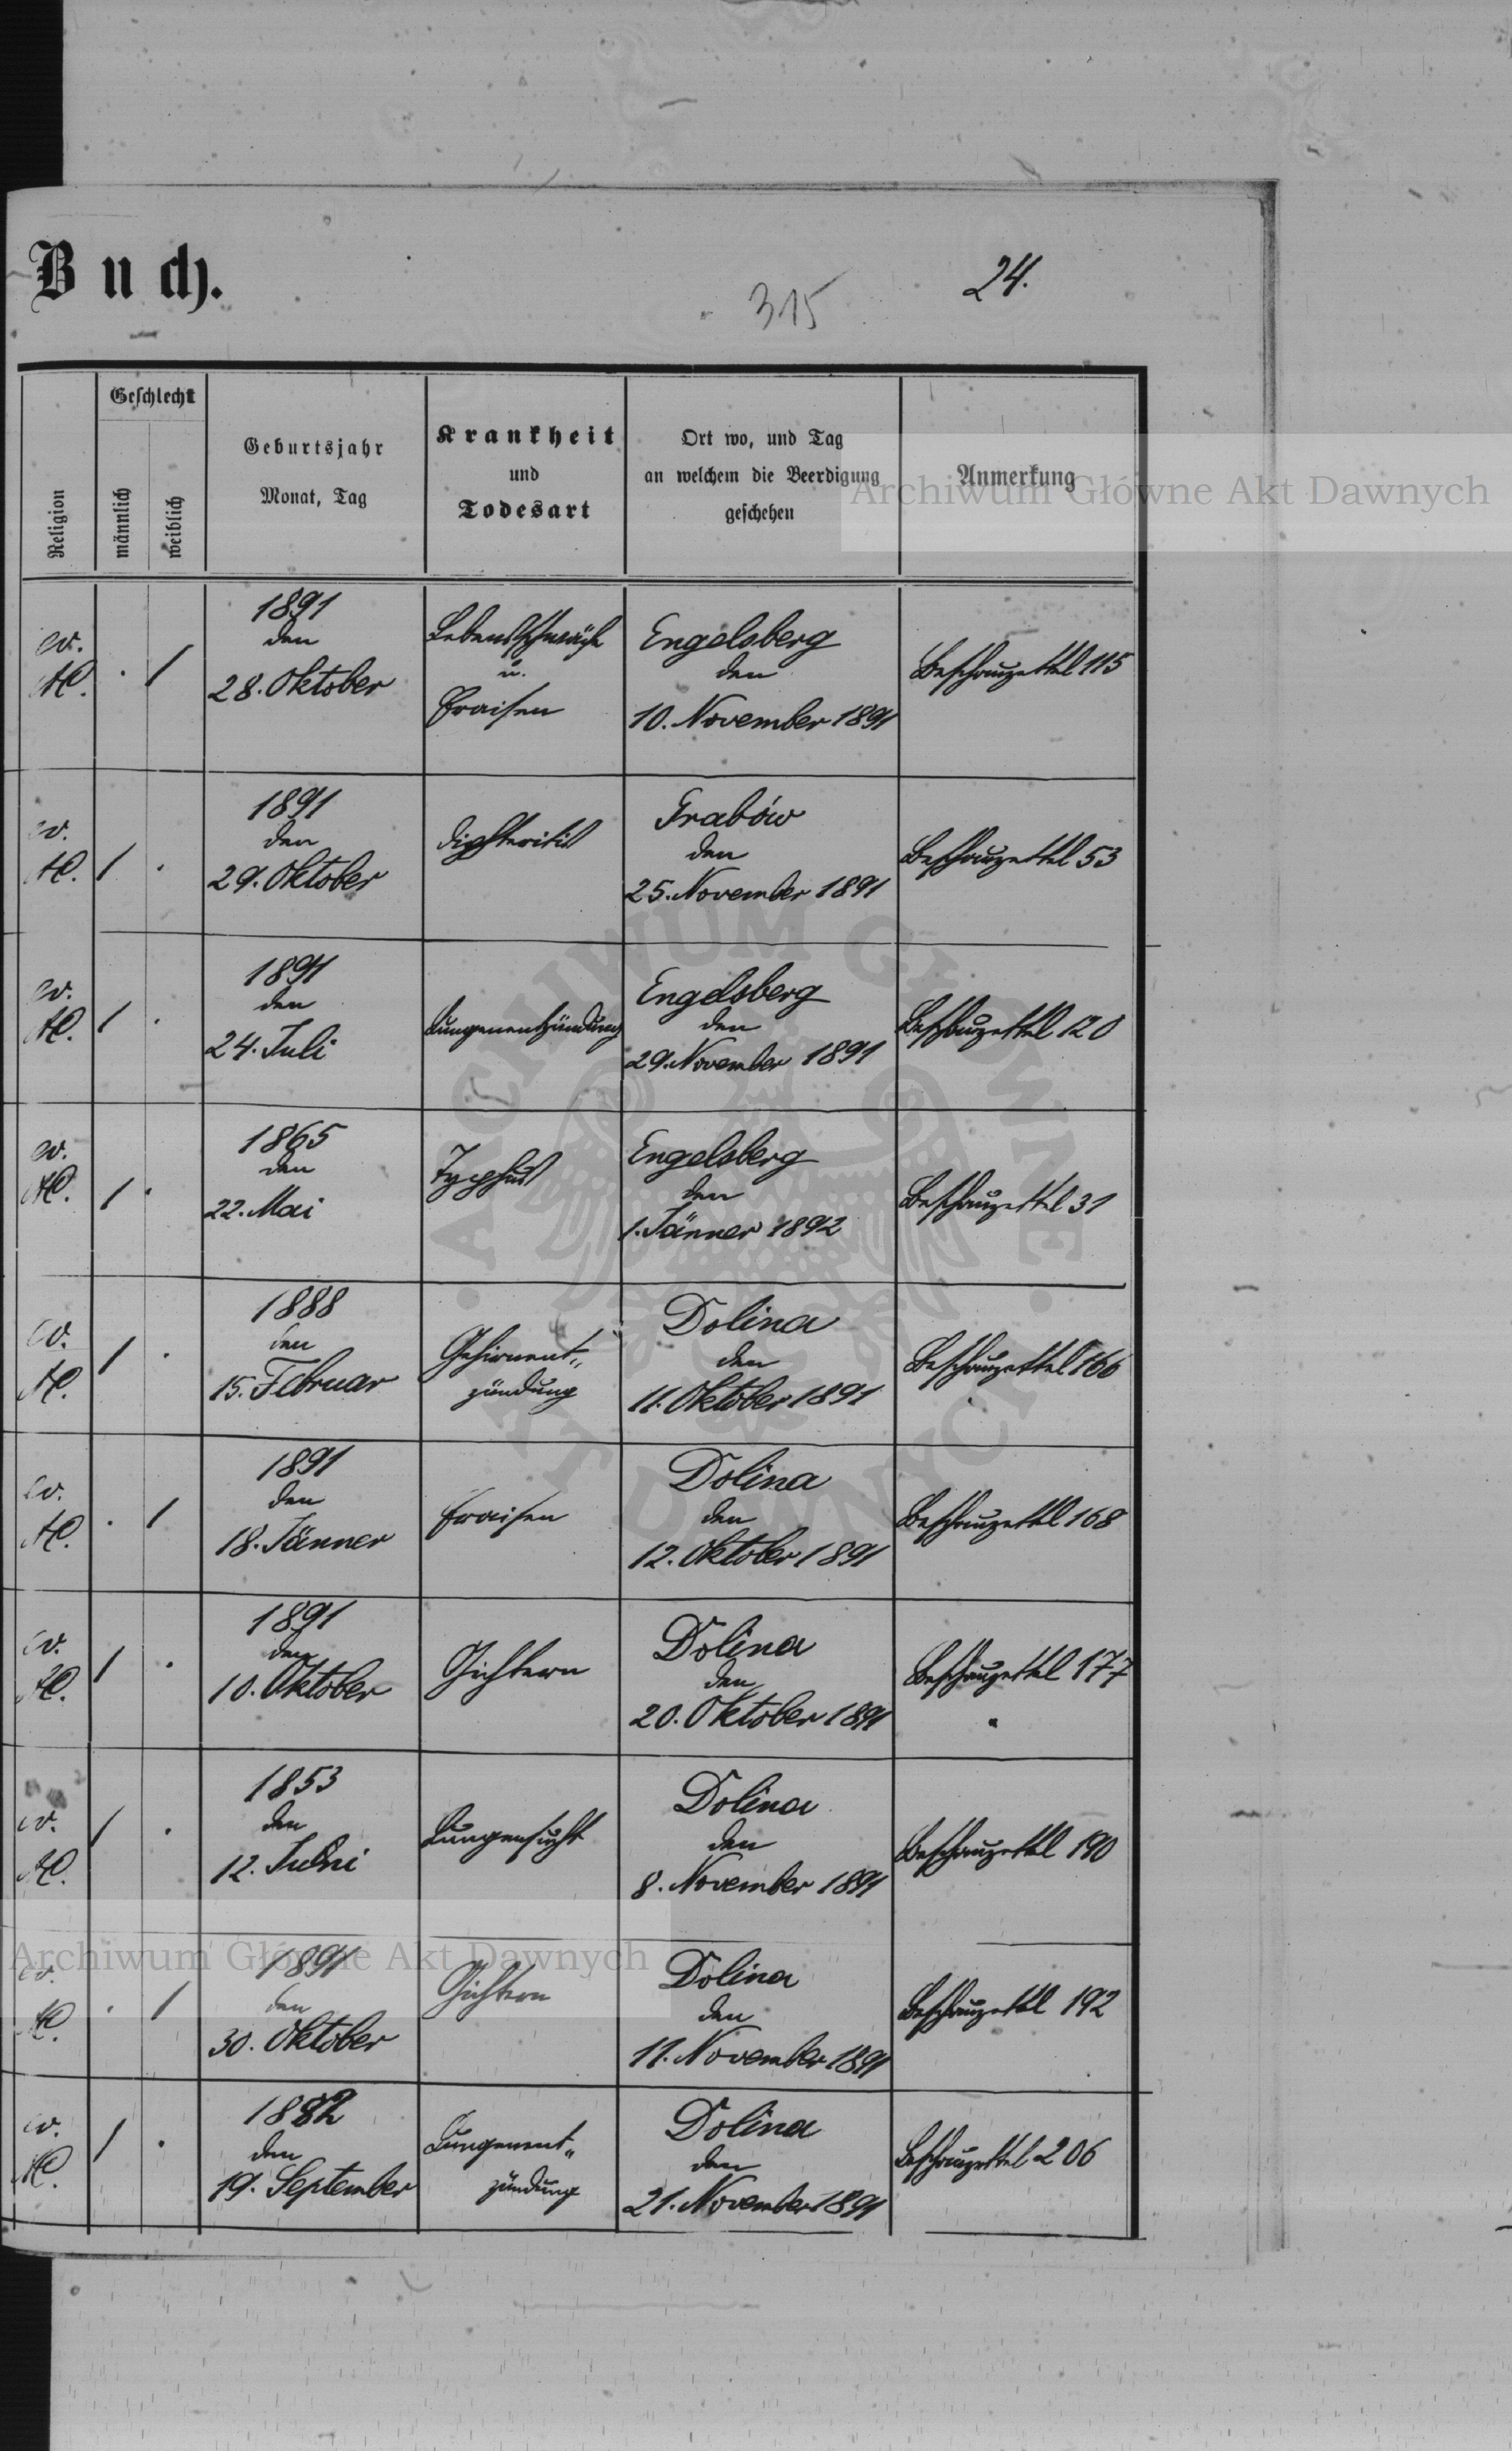 Buch.
24.
315
Religion
Geschlecht
männlich
weiblich
Geburtsjahr
Monat, Tag
Krankheit
und
Todesart
Ort wo, und Tag
an welchem die Beerdigung
geschehen
Anmerkung
Archiwum Główne Akt Dawnych
ev.
AC.
. /
1891
den
28. Oktober
Lebensschwäche
u.
Fraisen
Engelsberg
den
10. November 1891
Beschauzettel 115
ev.
AC.
/ .
1891
den
29. Oktober
Diphteritis
Grabów
den
25. November 1891
Beschauzettel 53
ev.
AC.
/ .
1891
den
24. Juli
Lungenentzündung
Engelsberg
den
29. November 1891
Beschauzettel 120
ev.
AC.
/ .
1865
den
22. Mai
Typhus
Engelsberg
den
1. Jänner 1892
Beschauzettel 31
ev.
AC.
/ .
1888
den
15. Februar
Gehirnent„
zündung
Dolina
den
11. Oktober 1891
Beschauzettel 166
ev.
AC.
. /
1891
den
18. Jänner
Fraisen
Dolina
den
12. Oktober 1891
Beschauzettel 168
ev.
AC.
/ .
1891
den
10. Oktober
Gichtern
Dolina
den
20. Oktober 1891
Beschauzettel 177
ev.
AC.
/ .
1853
den
12.
Lungensucht
Dolina
den
8. November 1891
Beschauzettel 190
Archiwum Główne Akt Dawnych
ev.
AC.
. /
1891
den
30. Oktober
Gichtern
Dolina
den
11. November 1891
Beschauzettel 192
ev.
AC.
/ .
1882
den
19. September
Lungenent„
zündung
Dolina
den
21. November 1891
Beschauzettel 206
ARCHIWUM GŁÓWNE AKT DAWNYCH